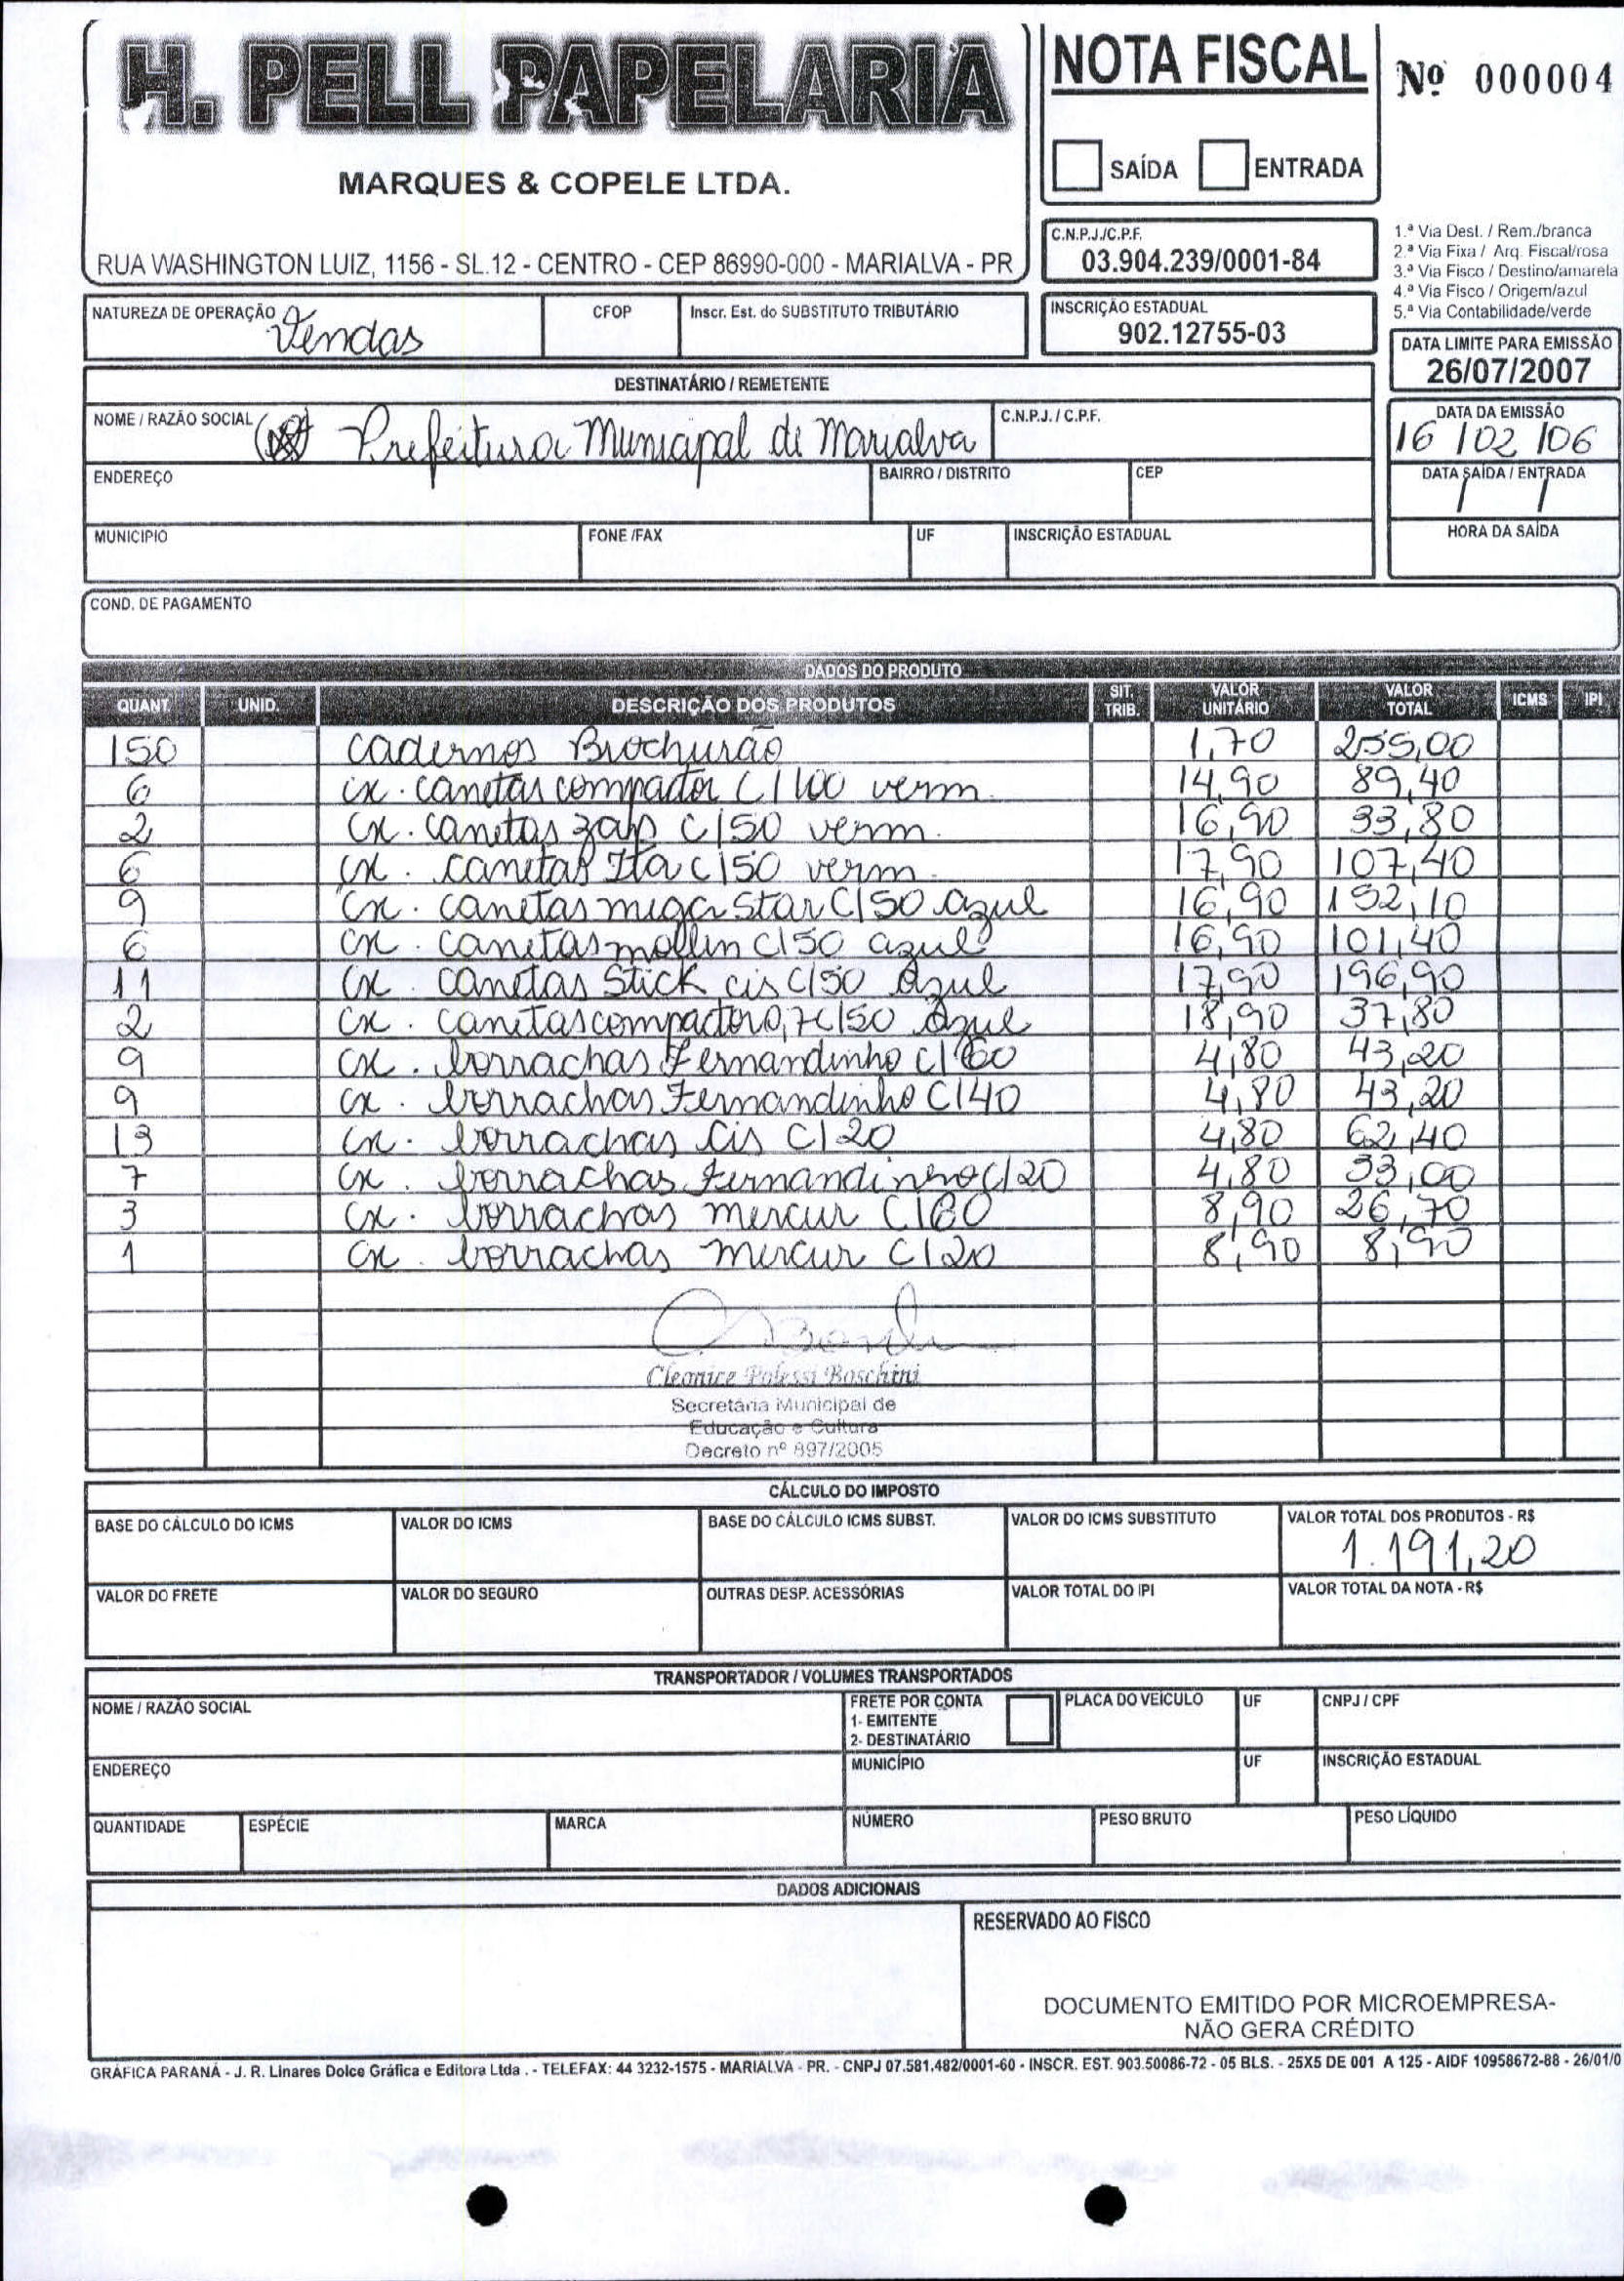 H. PELL PAPELARIA
MARQUES & COPELE LTDA.
RUA WASHINGTON LUIZ, 1156 - SL.12 - CENTRO - CEP 86990-000 - MARIALVA - PR
NOTA FISCAL
SAÍDA ENTRADA
Nº 000004
C.N.P.J./C.P.F.
03.904.239/0001-84
1.ª Via Dest. / Rem./branca
2.ª Via Fixa / Arq. Fiscal/rosa
3.ª Via Fisco / Destino/amarela
4.ª Via Fisco / Origem/azul
5.ª Via Contabilidade/verde
NATUREZA DE OPERAÇÃO Vendas CFOP Inscr. Est. do SUBSTITUTO TRIBUTÁRIO
INSCRIÇÃO ESTADUAL
902.12755-03
DATA LIMITE PARA EMISSÃO
26/07/2007
DESTINATÁRIO / REMETENTE
NOME / RAZÃO SOCIAL Prefeitura Municipal de Marialva C.N.P.J. / C.P.F.
DATA DA EMISSÃO
16 / 02 / 06
ENDEREÇO BAIRRO / DISTRITO CEP
DATA SAÍDA / ENTRADA
/ /
MUNICIPIO FONE /FAX UF INSCRIÇÃO ESTADUAL
HORA DA SAÍDA
COND. DE PAGAMENTO
DADOS DO PRODUTO
QUANT. UNID. DESCRIÇÃO DOS PRODUTOS SIT. TRIB. VALOR UNITÁRIO VALOR TOTAL ICMS IPI
150 cadernos Brochurão 1,70 255,00
6 cx. canetas compactor C/100 verm. 14,90 89,40
2 cx. canetas zap C/50 verm. 16,90 33,80
6 cx. canetas Ita c/50 verm. 17,90 107,40
9 cx. canetas mega Star C/50 azul 16,90 152,10
6 cx. canetas mollin c/50 azul 16,90 101,40
11 cx. canetas Stick cis C/50 Azul 17,90 196,90
2 cx. canetas compactor 0,7 C/50 Azul 18,90 37,80
9 cx. borrachas Fernandinho C/60 4,80 43,20
9 cx. borrachas Fernandinho C/40 4,80 43,20
13 cx. borrachas Cis C/20 4,80 62,40
7 cx. borrachas Fernandinho C/20 4,80 33,00
3 cx. borrachas mercur C/60 8,90 26,70
1 cx. borrachas mercur C/20 8,90 8,90
Cleonice Polessi Boschini
Secretária Municipal de
Educação e Cultura
Decreto nº 897/2005
CÁLCULO DO IMPOSTO
BASE DO CÁLCULO DO ICMS VALOR DO ICMS BASE DO CÁLCULO ICMS SUBST. VALOR DO ICMS SUBSTITUTO VALOR TOTAL DOS PRODUTOS - R$
1.191,20
VALOR DO FRETE VALOR DO SEGURO OUTRAS DESP. ACESSÓRIAS VALOR TOTAL DO IPI VALOR TOTAL DA NOTA - R$
TRANSPORTADOR / VOLUMES TRANSPORTADOS
NOME / RAZÃO SOCIAL FRETE POR CONTA PLACA DO VEÍCULO UF CNPJ / CPF
1- EMITENTE
2- DESTINATÁRIO
ENDEREÇO MUNICÍPIO UF INSCRIÇÃO ESTADUAL
QUANTIDADE ESPÉCIE MARCA NÚMERO PESO BRUTO PESO LÍQUIDO
DADOS ADICIONAIS
RESERVADO AO FISCO
DOCUMENTO EMITIDO POR MICROEMPRESA-
NÃO GERA CRÉDITO
GRÁFICA PARANÁ - J. R. Linares Dolce Gráfica e Editora Ltda . - TELEFAX: 44 3232-1575 - MARIALVA - PR. - CNPJ 07.581.482/0001-60 - INSCR. EST. 903.50086-72 - 05 BLS. - 25X5 DE 001 A 125 - AIDF 10958672-88 - 26/01/0